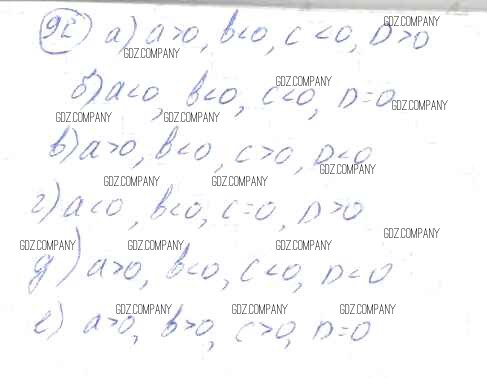 92 а) a>0, b<0, c<0, D>0
б) a<0, b<0, c<0, D=0
в) a>0, b<0, c>0, D<0
г) a<0, b<0, c=0, D>0
д) a>0, b<0, c<0, D<0
е) a>0, b>0, c>0, D=0
GDZ.COMPANY GDZ.COMPANY
GDZ.COMPANY GDZ.COMPANY GDZ.COMPANY GDZ.COMPANY
GDZ.COMPANY GDZ.COMPANY GDZ.COMPANY
GDZ.COMPANY GDZ.COMPANY GDZ.COMPANY GDZ.COMPANY
GDZ.COMPANY GDZ.COMPANY GDZ.COMPANY